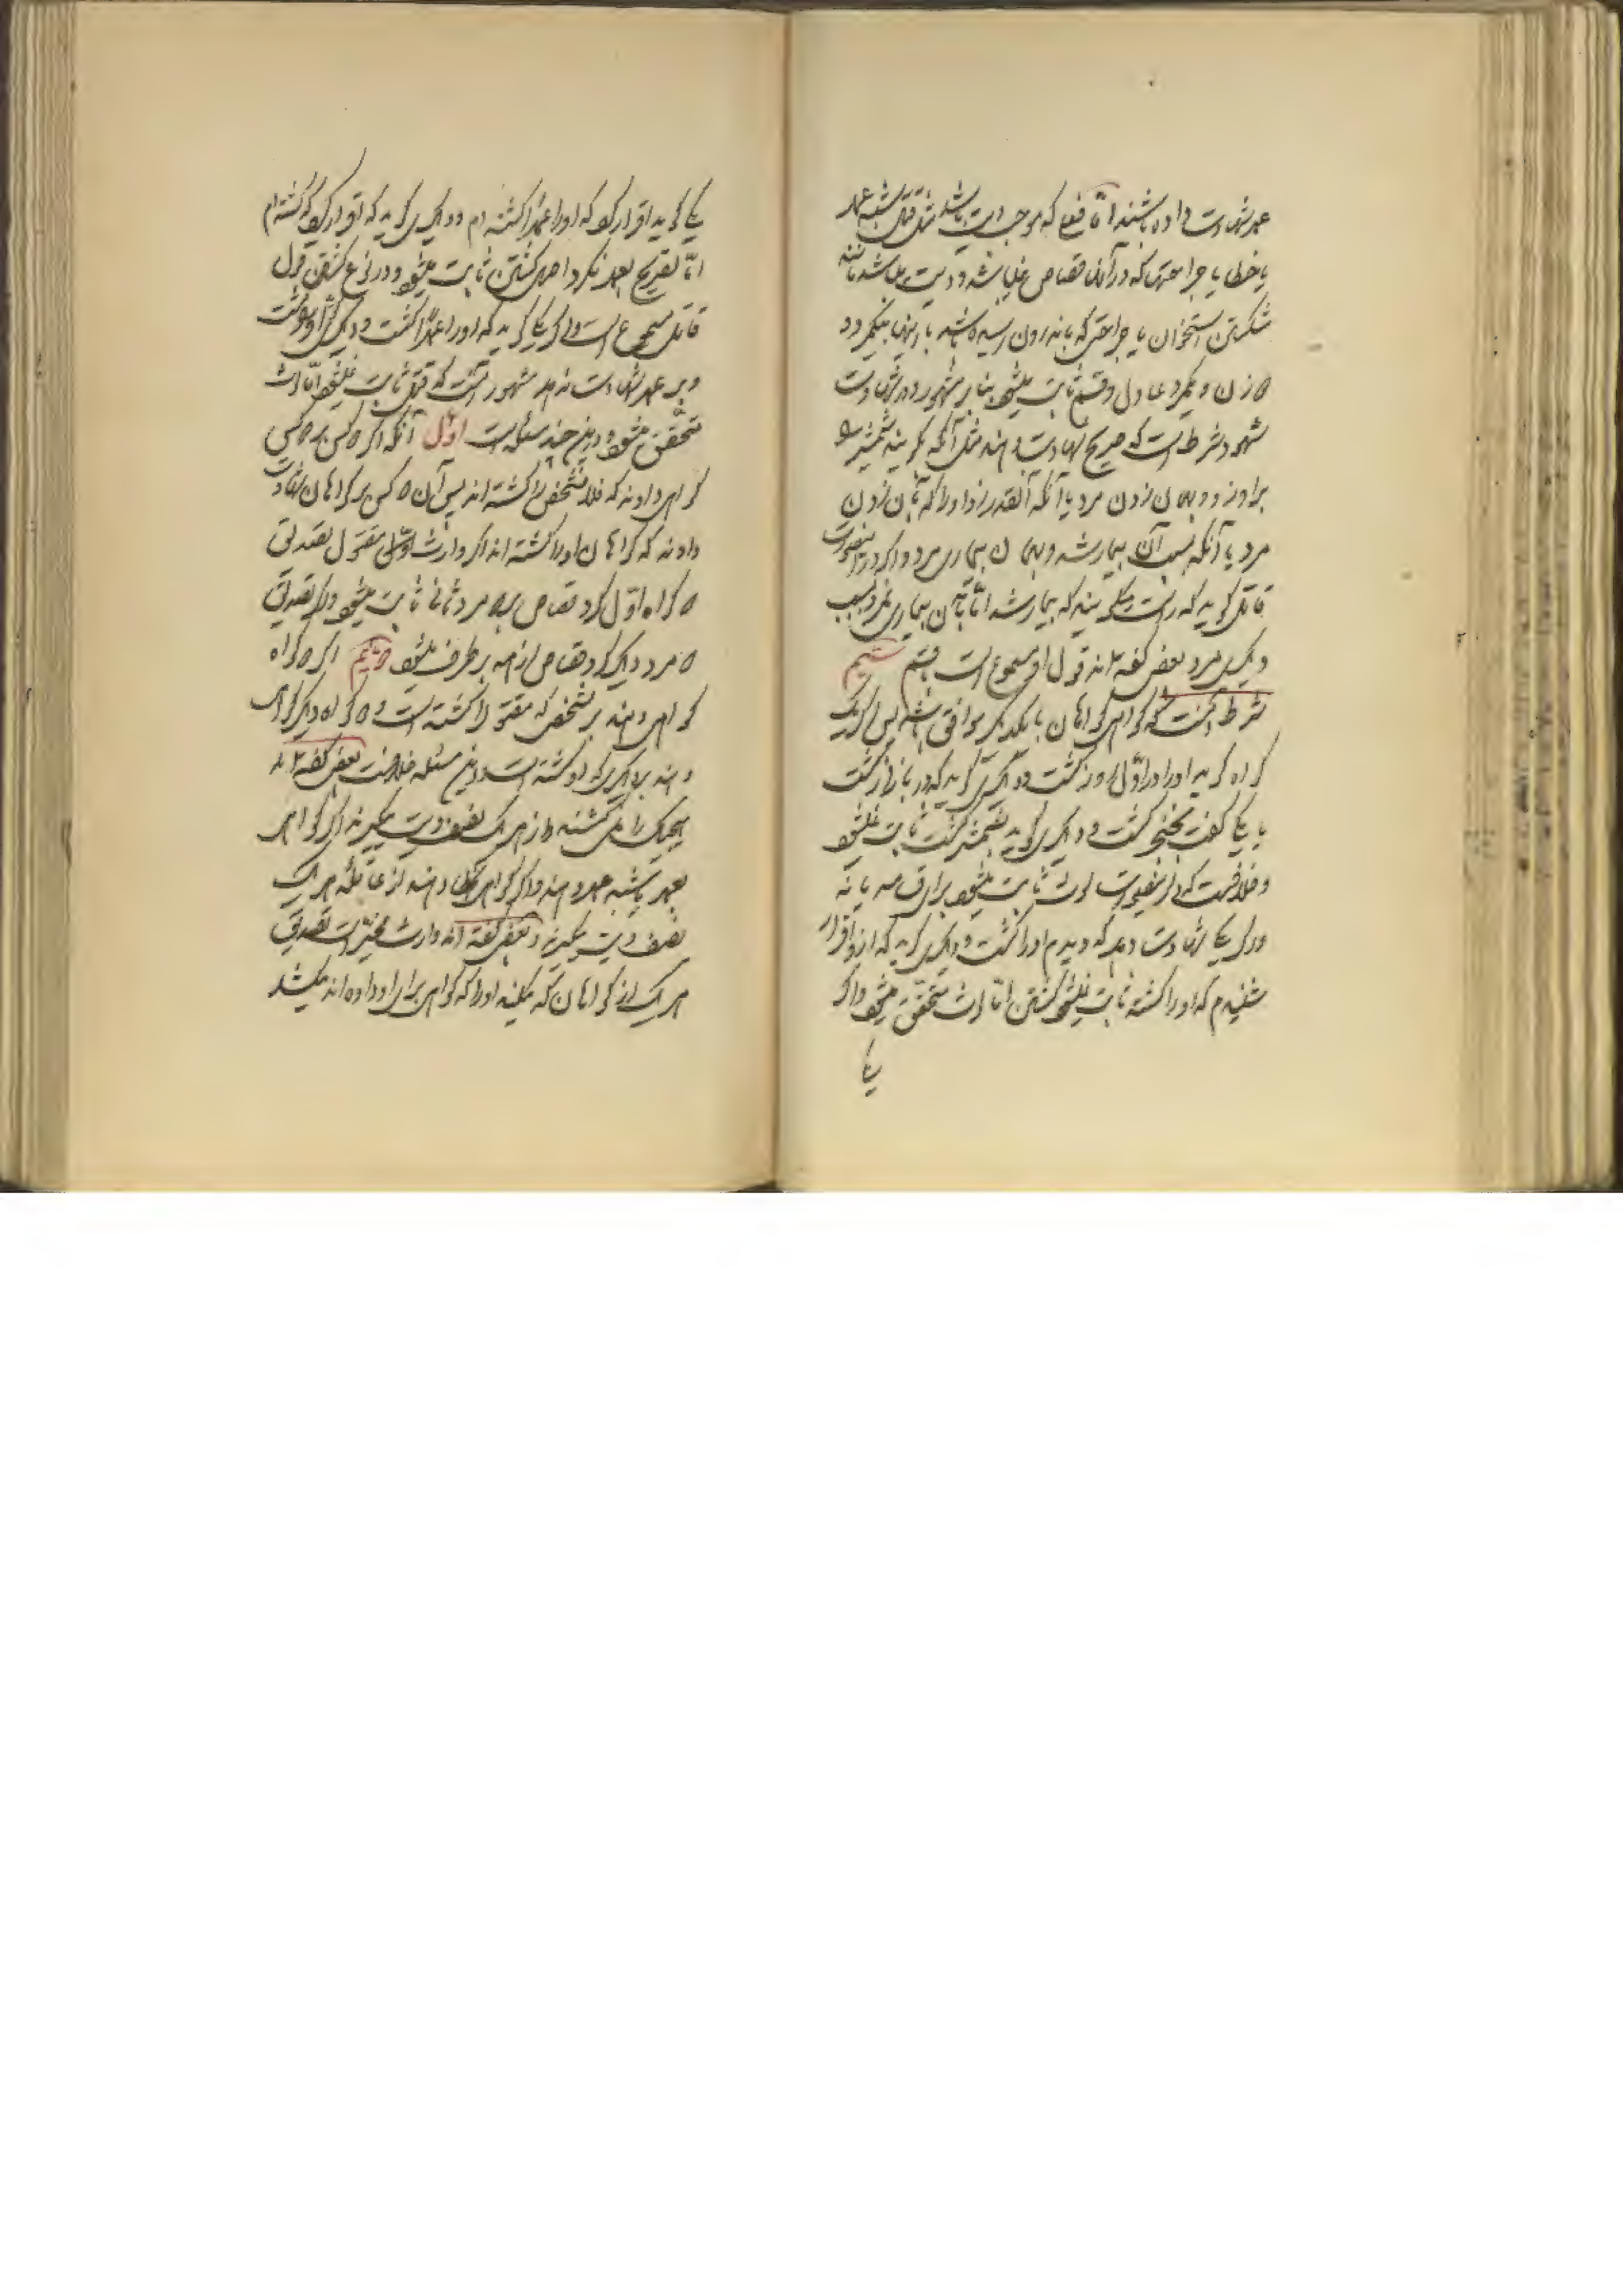 عدل شهادت داده باشند امّا فعلی که موجب دیت باشد مثل قتل شبه عمد
یا خطا یا جراحتی که در آنها قصاص نمی‌باشد و دیت می‌باشد مانند
شکستن استخوان یا جراحتی که باندرون رسیده باشد با اینها بیکمرد و
دو زن و یکمرد عادل و قسم ثابت میشود بنابر مشهور و در شهادت
شهود شرط است که صریح شهادت دهند مثل آنکه گویند شمشیر
بر او زد و بهمان زدن مرد یا آنکه آنقدر زد او را که بآن زدن
مرد یا آنکه بسبب آن بیمار شد و بهمان بیماری مرد و اگر در اینصورت
قاتل گوید که راست میگویند که بیمار شد امّا بآن بیماری نمرد بسبب
دیگری مرد بعضی گفته‌اند قول او مسموع است با قسم
شرط است که گواهی گواهان با یکدیگر موافق باشد پس اگر یک
گواه گوید او را در اوّل روز کشت و دیگری گوید که در بازار کشت
یا یکی گفت بخنجر کشت و دیگری گوید بشمشیر کشت ثابت نمیشود
و خلافست که در اینصورت لوث ثابت میشود برای قسامه یا نه
و اگر یکی شهادت دهد که دیدم او را کشت و دیگری گوید که از او اقرار
شنیدم که او را کشته ثابت نمیشود کشتن امّا لوث متحقّق میشود و اگر
یکی
یکی گوید اقرار کرد که او را عمداً کشته‌ام و دیگری گوید که اقرار کرد که کشته‌ام
امّا تصریح بعمد نکرد اصل کشتن ثابت میشود و در نوع کشتن قول
قاتل مسموع است و اگر یکی گوید که او را عمداً کشت و دیگری
و بر عمد شهادت ندهد مشهور آنست که قتل ثابت نمیشود امّا لوث
متحقّق میشود و در این چند مسئله است اوّل آنکه اگر دو کس بر دو کس
گواهی دادند که فلان شخص را کشته‌اند پس آن دو کس بر گواهان شهادت
دادند که گواهان او را کشته‌اند اگر وارث مقتول تصدیق
دو گواه اوّل کرد قصاص بر دو مرد ثانی ثابت میشود و اگر تصدیق
دو مرد دیگر کرد قصاص از همه برطرف میشود دویم اگر دو گواه
گواهی دهند بر شخصی که مقتول را کشته است و دو گواه دیگر گواهی
دهند بر دیگری که او کشته است در این مسئله خلافست بعضی گفته‌اند
هیچیک را نمی‌کشند و از هر یک نصف دیت میگیرند اگر گواهی
بعمد یا شبه عمد دهند و اگر گواهی بخطا دهند از عاقله هر یک
نصف دیت میگیرند و بعضی گفته‌اند وارث مخیّر است تصدیق
هر یک از گواهان که میکند او را که گواهی برای او داده‌اند میکشد